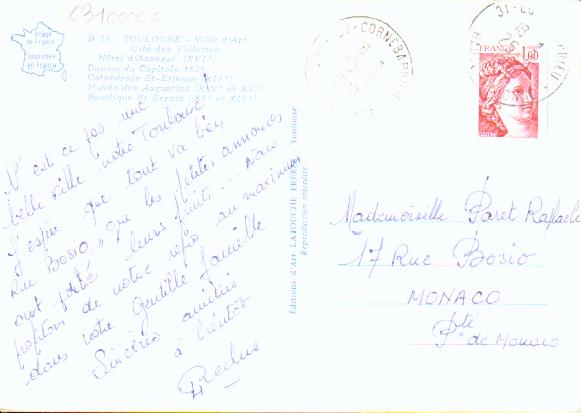 03100003
Image
de France
Imprimée
en France
B 33 - TOULOUSE - Ville d'Art
Cité des Violettes
Hôtel d'Assezat (XVIº)
Donjon du Capitole 1525
Cathédrale St-Etienne
Musée des Augustins (XIVº et XVº)
Basilique St Sernin (XIº et XIIº)
N'est ce pas une
belle ville notre Toulouse
J'espère que tout va bien
Rue Bosio, que les petites annonces
ont porté leurs fruits... Nous
profitons de notre repos au maximum
dans notre Gentille famille
Sincères amitiés
à bientôt
Editions d'Art LARTOUCHE FRERES - Toulouse
Reproduction interdite
31-CORNEBARRIEU
FRANCE
1,00
Mademoiselle Paret Raffaele
17 Rue Bosio
MONACO
Pté de Monaco